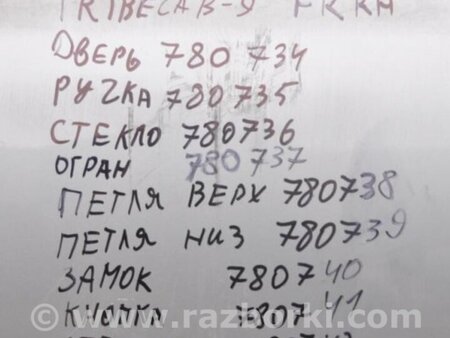 TRIBECA B-9
ДВЕРЬ 780 734
РУЧКА 780735
СТЕКЛО 780736
ОГРАН 780 737
ПЕТЛЯ ВЕРХ 780738
ПЕТЛЯ НИЗ 780739
ЗАМОК 780740
КНОПКА 780741
www.razborki.com